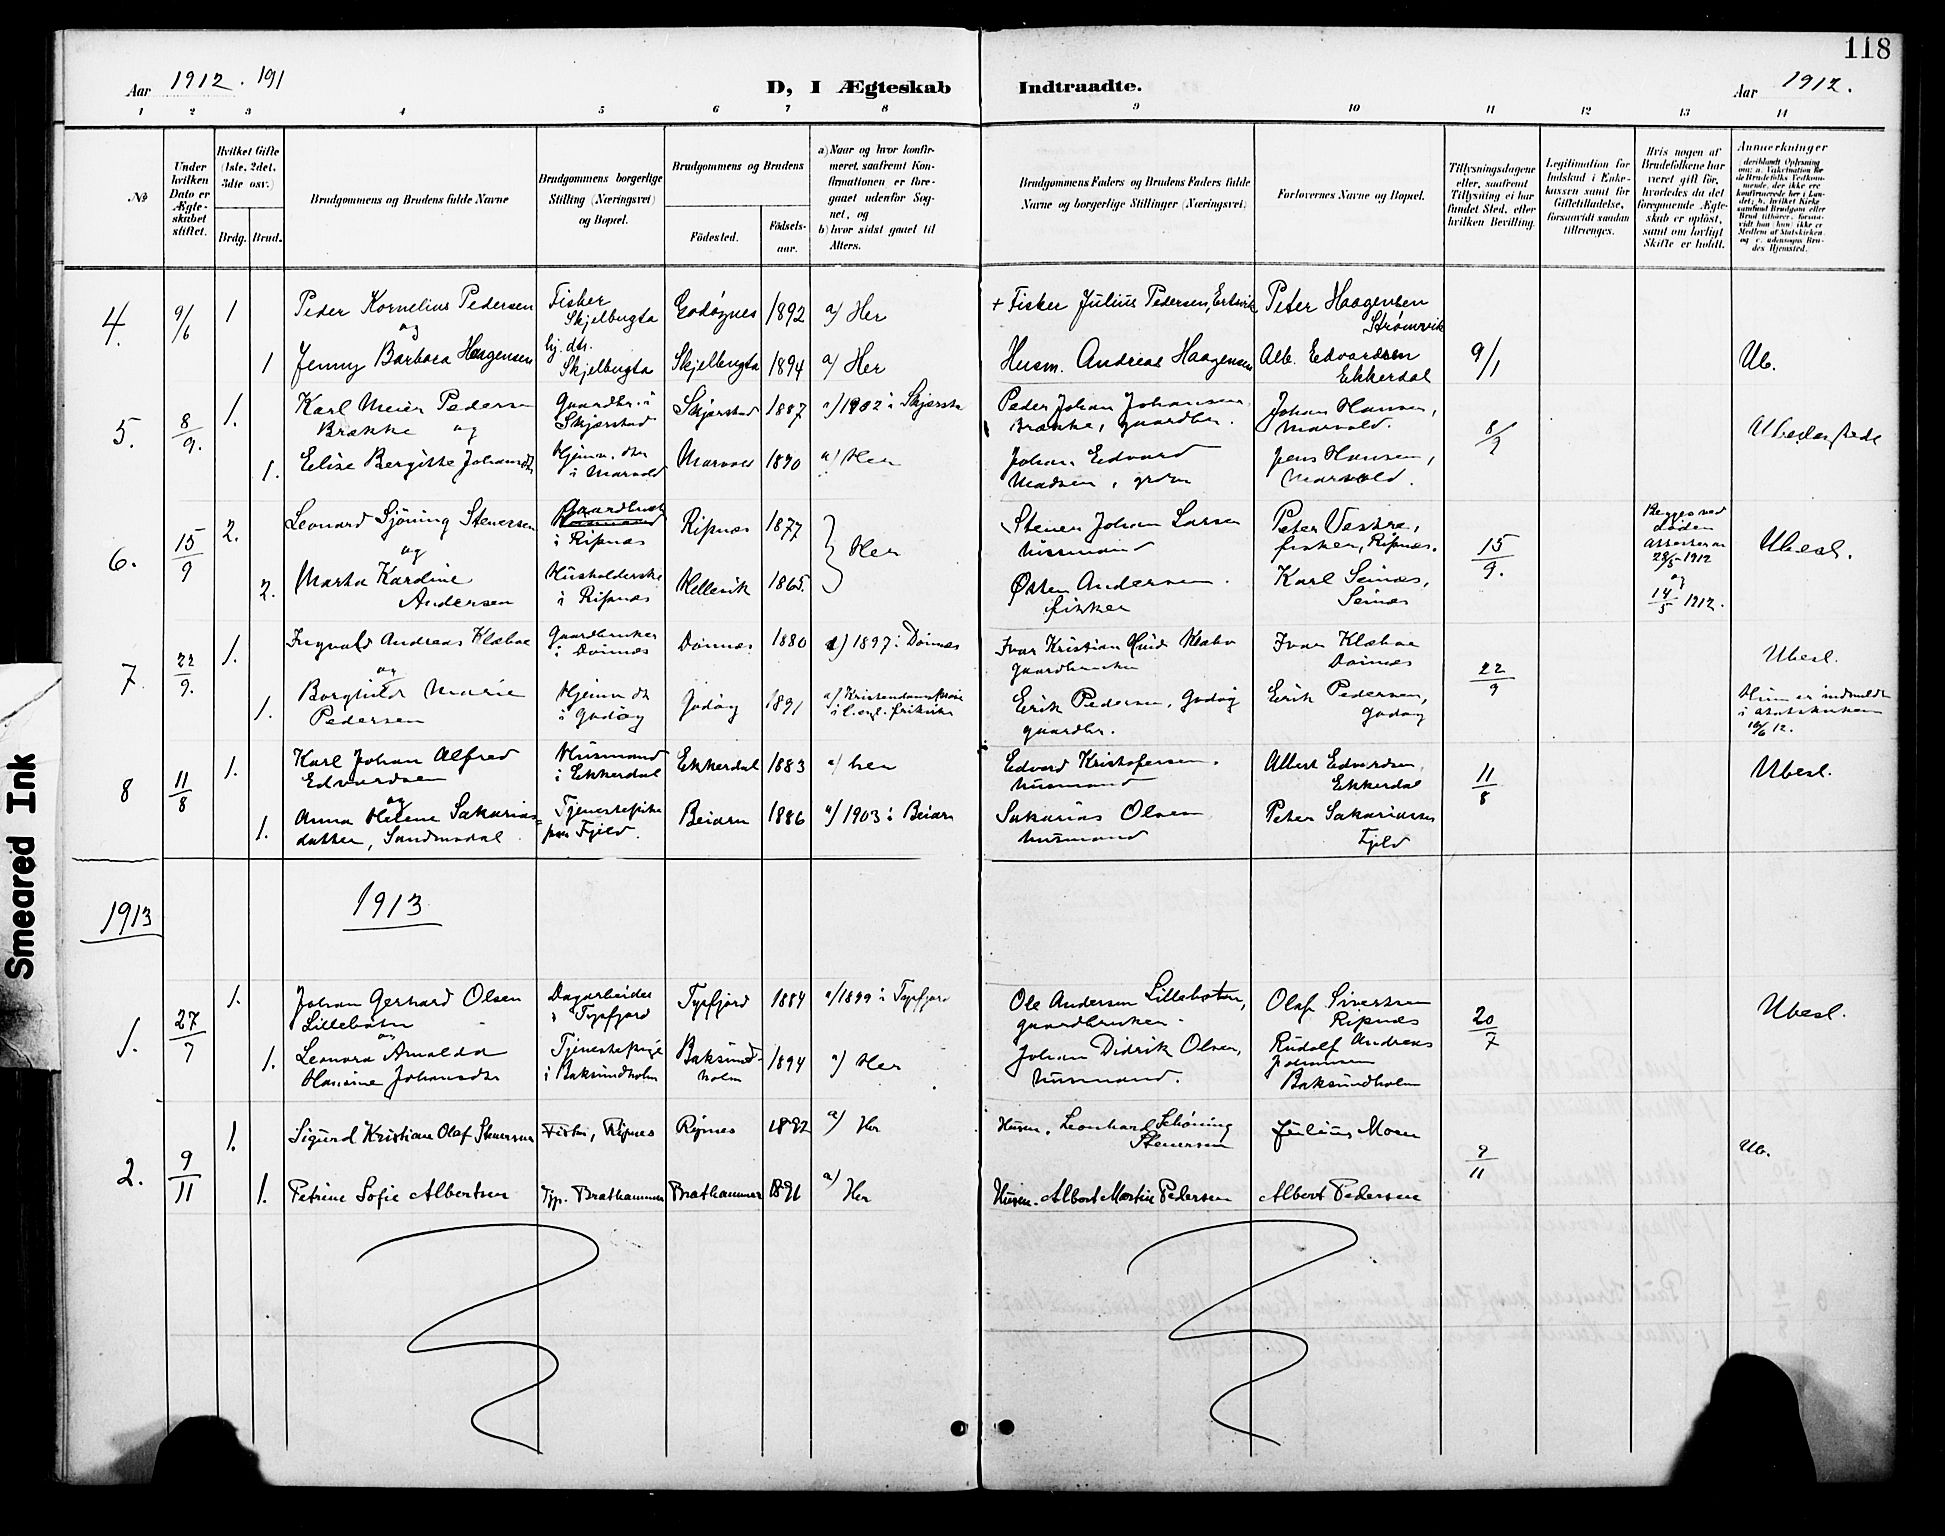 118
Aar 1912. 191
D, I Ægteskab Indtraadte.
Aar 1912.
1 2 3 4 5 6 7 8 9 10 11 12 13 14
No
Under hvilken Dato er Ægteskabet stiftet.
Hvilket Gifte (1ste, 2det, 3die osv.)
Brdg. Brud.
Brudgommens og Brudens fulde Navne
Brudgommens borgerlige Stilling (Næringsvei) og Bopæl.
Brudgommens og Brudens
Fødested.
Fødselsaar.
a) Naar og hvor konfirmeret, saafremt Konfirmationen er foregaaet udenfor Sognet, og
b) hvor sidst gaaet til Alters.
Brudgommens Faders og Brudens Faders fulde Navne og borgerlige Stillinger (Næringsvei)
Forlovernes Navne og Bopæl.
Tillysningsdagene eller, saafremt Tillysning ei har fundet Sted, efter hvilken Bevilling.
Legitimation for Indskud i Enkekassen samt for Giftetilladelse, forsaavidt saadan tiltrænges.
Hvis nogen af Brudefolkene har været gift før, hvorledes da det foregaaende Ægteskab er opløst, samt om lovligt Skifte er holdt.
Anmerkninger
4. 9/6 1 Peder Kornelius Pedersen Fisker Skjelbugta Godøynes 1892 a) Her + Fisker Julius Pedersen, Ertsvik Peter Haagensen Strømsvik
og
1 Jenny Barbara Haagensen hj. dtr. Skjelbugta Skjelbugta 1894 a) Her Husm. Andreas Haagensen Alb. Edvardsen Ekkerdal 9/1 Ub.
5. 8/9. 1. Karl Meier Pedersen Brække og Gaardbr. i Skjørstad Skjørstad 1887 a) 1902 i Skjørsta Peder Johan Johansen Brække, gaardbr. Johan Hansen, Marvold. 8/9
1. Elise Bergitte Johansdtr Hjemv. dtr i Marvold Marvold 1890 a) Her Johan Edvard Madsen, grdbr Jens Hansen, Marvold.
6. 15/9 2. Leonard Sjöning Stenersen Gaardbruk i Ripnæs Ripnæs 1877 Her Stener Johan Larsen husmand Peter Vestre, fisker, Ripnæs. 15/9. Begges ved Døden 28/5 1912 og 14/5 1912. Ubesl.
og
2. Marta Kardine Andersen Husholderske i Ripnæs Hellevik 1865. Østen Andersen. fisker Karl Seinæs, Seinæs
7. 22/9. 1. Ingvald Andreas Klæboe Gaardbruker i Dønnæs Dønnæs 1880 a) 1897 i Dønnæs Ivar Kristian Hind Klæbo gaardbruker Ivar Klæboe Dønnæs 22/9 Ubesl.
og
1. Borghild Marie Pedersen Hjemv dtr i Godøy Godøy 1891 Erik Pedersen, Godøy gaardbr. Erik Pedersen, Godøy Hun er indmeldt i statskirken 10/6 12.
8 11/8 1. Karl Johan Alfred Edvardsen Husmand i Ekkerdal Ekkerdal 1883 a) her Edvard Kristofersen. husmand Albert Edvardsen, Ekkerdal 11/8 Ubesl.
og
1. Anna Helene Sakariasdatter, Sandmodal Tjenestepike paa Fjeld. Beiarn 1886 a) 1903 i Beiarn Sakarias Olsen husmand Peter Sakariassen Fjeld
1913 1913
1. 27/7 1. Johan Gerhard Olsen Lillebotn Dagarbeider i Tysfjord Tysfjord 1884 a) 1899 i Tysfjord Ole Andersen Lillebotn, gaardbruker. Olaf Sivertsen Ripnæs 20/7 Ubesl.
og
1. Leonora Arnolda Hansine Johansdtr Tjenestepige i Baksundholm Baksundholm 1894 a) Her Johan Didrik Olsen, husmand. Rudolf Andreas Johansen Baksundholm
2. 9/11 1. Sigurd Kristian Olaf Stenersen Fisker, Ripnes Ripnes 1892 a) Her Husm. Leonhard Schöning Stenersen Julius Moen 9/11 Ub.
1. Petrine Sofie Albertsen Tjp. Brathammer Brathammer 1891 a) Her Husm. Albert Martin Pedersen Albert Pedersen
Smeared Ink